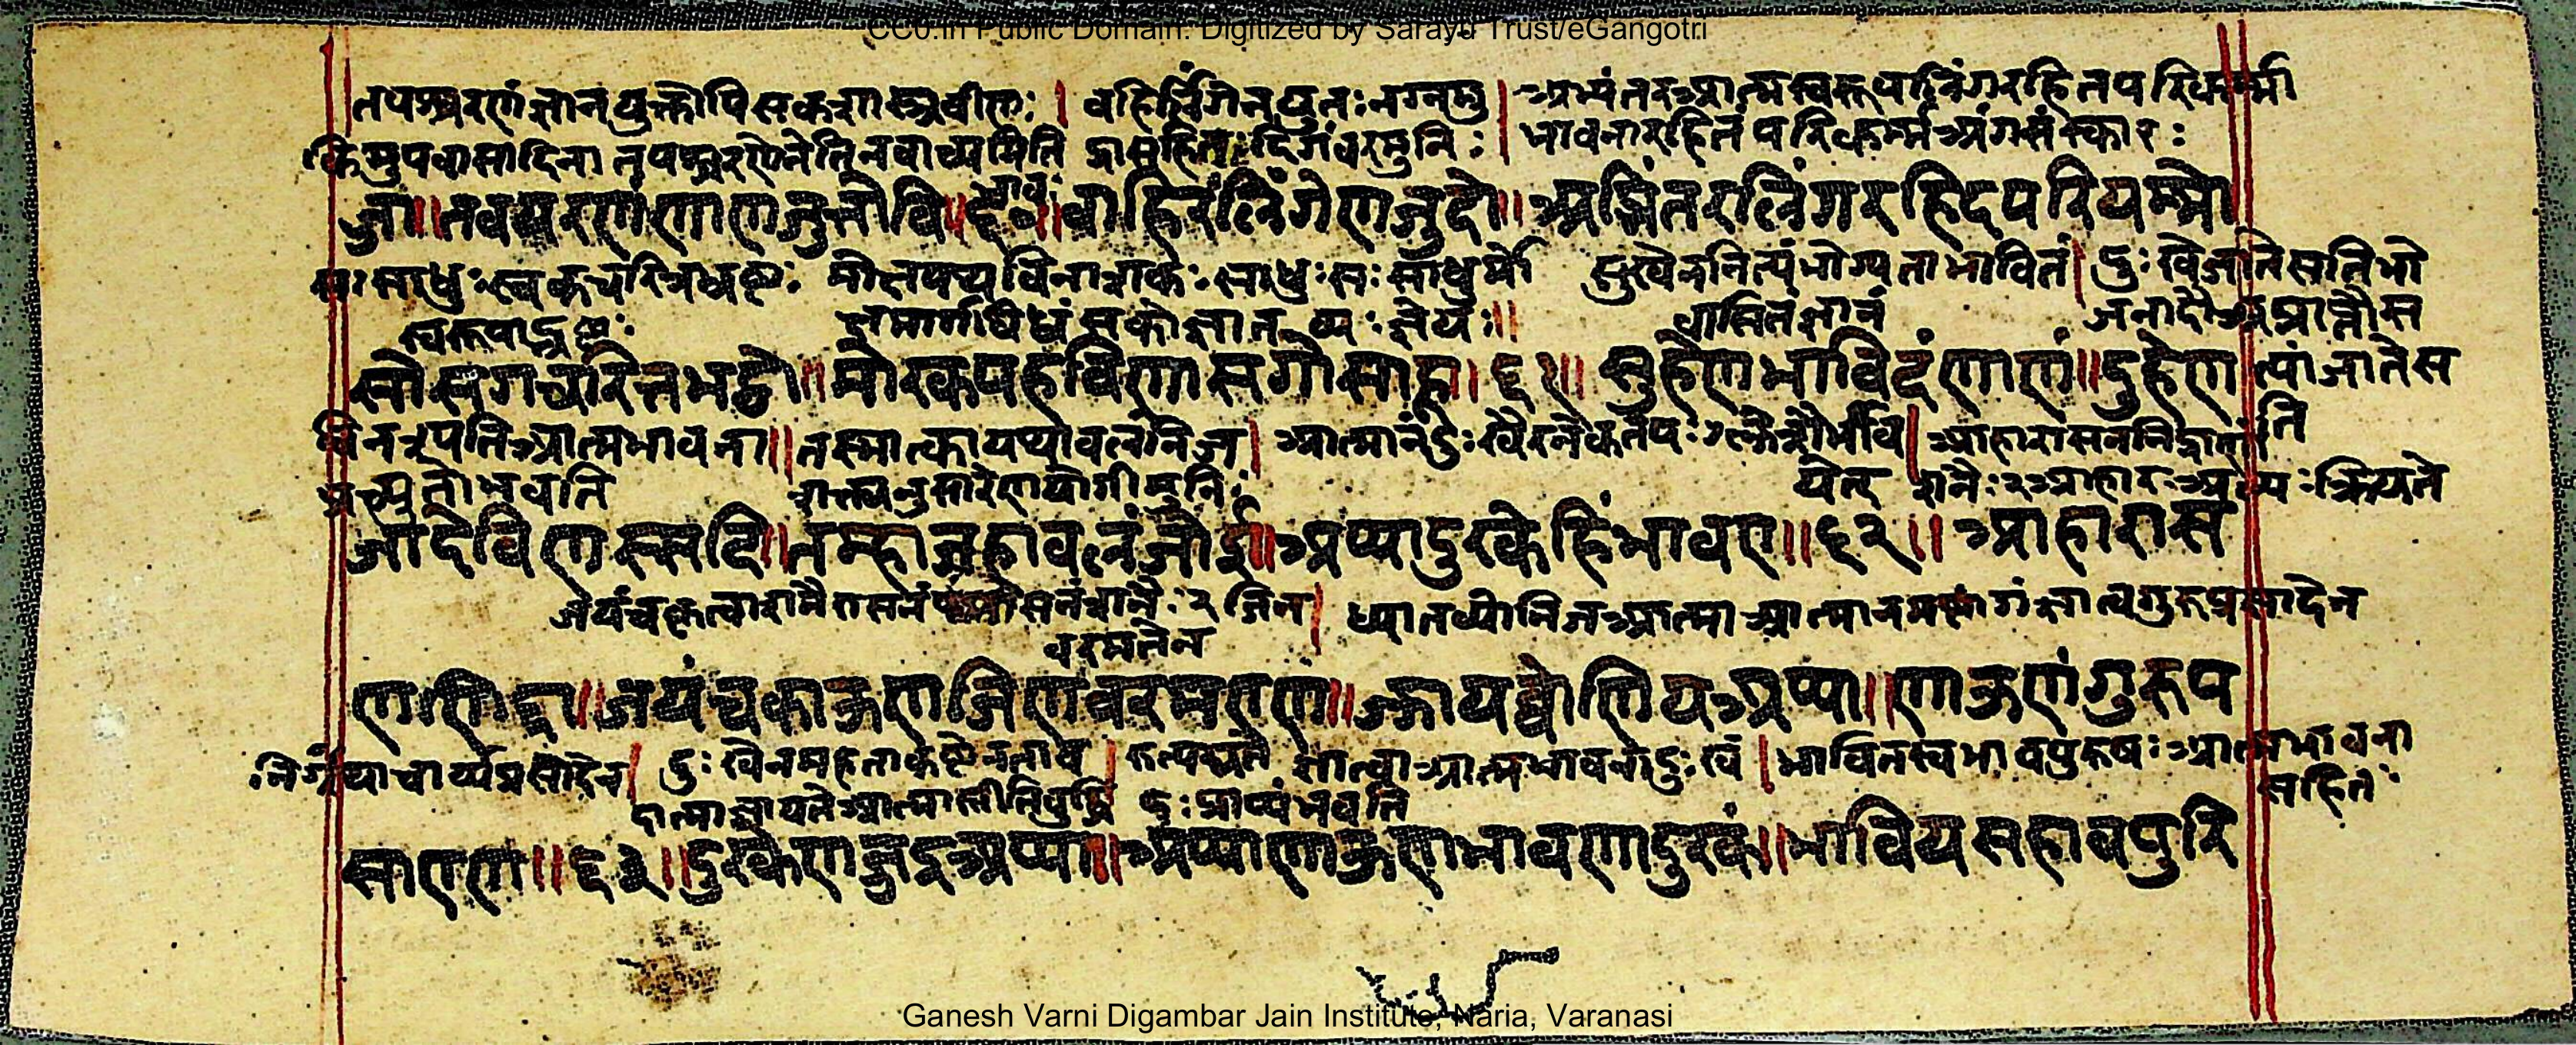 CC0.In Public Domain. Digitized by Sarayu Trust/eGangotri
तपश्चरणं ज्ञानयुक्तोपि सकल । वहिर्लिंगेनयुतः नग्नमु । अभ्यंतरआत्मस्वरूपलिंगरहितपरिकर्म्मा
किमुपवासादिना तपश्चरणेनेति न वाच्यमिति दिगंवरमुनिः । भावनारहितं परिकर्म्मअंगसंस्कारः
ज्जा ॥ तवयरणंणाणजुत्तोवि ॥ ६० ॥ वाहिरलिंगेणजुदो ॥ अब्भिंतरलिंगरहिदपरियम्मो
सः साधुः स्वकचारित्रभ्रष्टः मोक्षपथविनाशकः साधुः सः साधुर्मो सुखेननित्यंभोग्यताभावितं । दुःखेजातिसतिभो
स्वरूपाद्भ्रष्टः क्षमार्गविध्वंसकोज्ञातव्यः ज्ञेयः ॥ वासितंज्ञानं जनादौअप्राप्तौस
सोसगचरित्तभट्टो ॥ मोरकपहविणासगोसाहू । ६१ ॥ सुहेणभाविदंणाणं ॥ दुहेण त्यांजातेस
विनश्यति आत्मभावना ॥ तस्मात्कायथावलंनिज । आत्मानंदुःखैरनेकतपःक्लेशैर्भावि । आहारासननिद्राणां ति
प्रच्युतोभवति शक्त्यनुसारेणयोगीमुनिः येत् शनैः२आहारःअल्पःक्रियते
जादेविणस्सदि ॥ तम्हाजहावलंजोई ॥ अप्पादुरकेहिंभावए ॥ ६२ ॥ आहारास
जयंचकृत्वाशनैः आसनं शनैः २ जिन । ध्यातव्योनिजआत्मा आत्मानं ज्ञात्वागुरुप्रसादेन
वरमतेन
णणिद्दा ॥ जयंचकाऊणजिणवरमएण ॥ ज्झायव्वोणियअप्पा ॥ णाऊणंगुरुप
निर्ग्रंथाचार्य्यप्रसादेन । दुःखेनमहताकष्टेनताव । ज्ञात्वाआत्मभावनादुःखं । भावितस्वभावपुरुषःआत्मभावना
दात्माज्ञायतेआत्मास्तीतिवुद्धि दुःप्राप्यंभवति सहितः
साएण ॥ ६३ ॥ दुरकेणज्जइअप्पा ॥ अप्पाणाऊणभावणादुरकं ॥ भावियसहावपुरि
Ganesh Varni Digambar Jain Institute, Naria, Varanasi